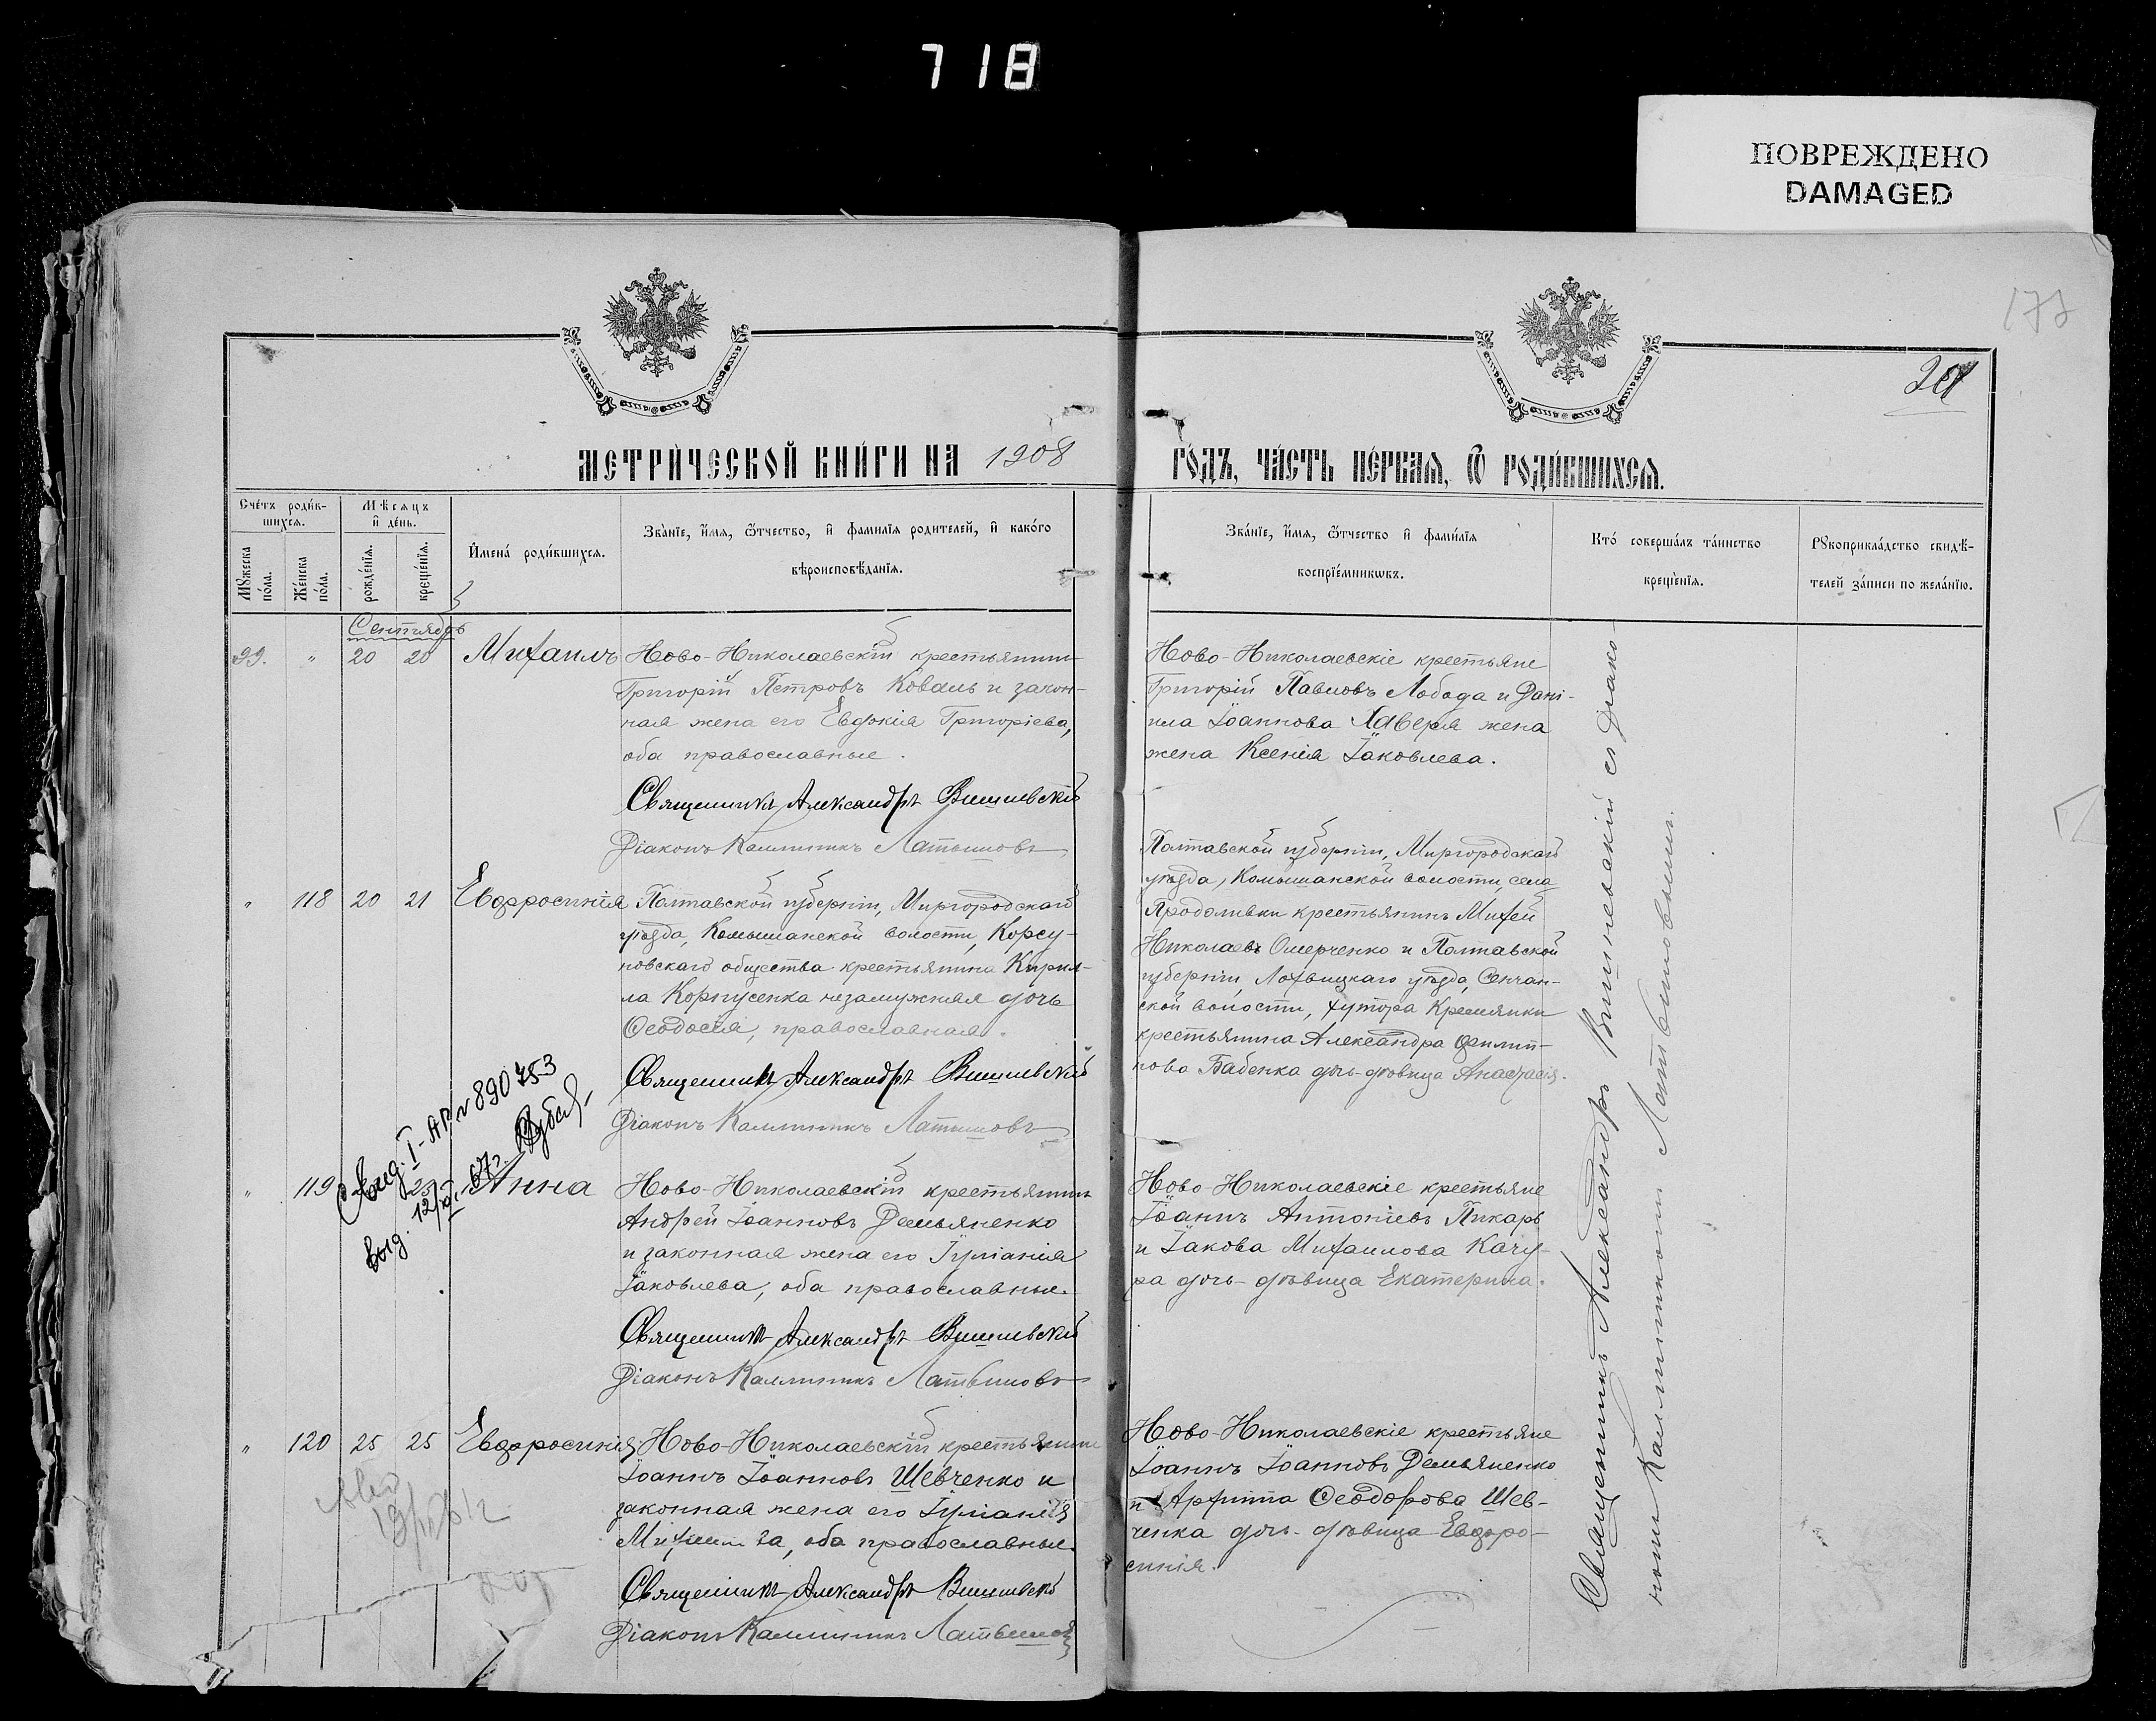 718
ПОВРЕЖДЕНО
DAMAGED
МЕТРИ́ЧЕСКОЙ КНИ́ГИ НА 1908
ГО́ДЪ, ЧА́СТЬ ПЕ́РВАЯ, Ѿ РОДИ́ВШИХСЯ.
Сче́тъ роди́в-
шихся.
Мѣсяцъ
и҆ де́нь.
Мꙋжеска по́ла.
Же́нска по́ла.
рожде́нїѧ.
креще́нїѧ.
И҆мена̀ роди́вшихсѧ.
Зва́нїе, и҆́мѧ, ѻ҆́тчество, и҆ фами́лїѧ родителей, и҆ како́гѡ
вѣроисповѣ́данїѧ.
Зва́нїе, и҆́мѧ, ѻ҆́тчество и҆ фами́лїѧ
воспрїе́мникѡвъ.
Кто̀ соверша́лъ та́инство
креще́нїѧ.
Рꙋкоприкла́дство свидѣ́-
телей за́писи по жела́нїю.
Сентябрь
99. " 20 20 Михаилъ
Ново-Николаевскій крестьянин
Григорій Петровъ Коваль и закон-
ная жена его Евдокія Григоріева,
оба православные.
Священникъ Александръ Вишневскій
Діаконъ Каллиникъ Латышовъ
Ново-Николаевскіе крестьяне
Григорій Павловъ Лобода и Дані-
ила Іоаннова Хаверя жена
жена Ксенія Іаковлева.
" 118 20 21 Евфросинія
Полтавской губерніи, Миргородскаго
уѣзда, Комышанской волости, Корсу-
новскаго общества крестьянина Кирил-
ла Корпусенка незамужняя дочь
Ѳеодосія, православная.
Священникъ Александръ Вишневскій
Діаконъ Каллиникъ Латышовъ
Полтавской губерніи, Миргородскаго
уѣзда, Комышанской волости, села
Проделивки крестьянинъ Михей
Николаевъ Омерченко и Полтавской
губерніи, Лохвицкаго уѣзда, Сенчан-
ской волости, хутора Кремянки
крестьянина Александра Филип-
пова Бабенка дочь-дѣвица Анастасія.
Свид. I-АП № 890753
выд. 12/XI-67г.
" 119 25 Анна
Ново-Николаевскій крестьянинъ
Андрей Іоанновъ Демьяненко
и законная жена его Іуліанія
Іаковлева, оба православные.
Священникъ Александръ Вишневскій
Діаконъ Каллиникъ Латышовъ
Ново-Николаевскіе крестьяне
Іоаннъ Антоніевъ Пикарь
и Іакова Михаилова Качу-
ра дочь-дѣвица Екатерина.
" 120 25 25 Евфросинія
Ново-Николаевскій крестьянин
Іоаннъ Іоанновъ Шевченко и
законная жена его Іуліанія
оба православные.
Священникъ Александръ Вишневскій
Діаконъ Каллиникъ Латышовъ
Ново-Николаевскіе крестьяне
Іоаннъ Іоанновъ Демьяненко
и Архиппа Ѳеодорова Шев-
ченка дочь-дѣвица Евфро-
синія.
Священникъ Александръ Вишневскій съ Діако-
номъ Каллиникомъ Латышовымъ.